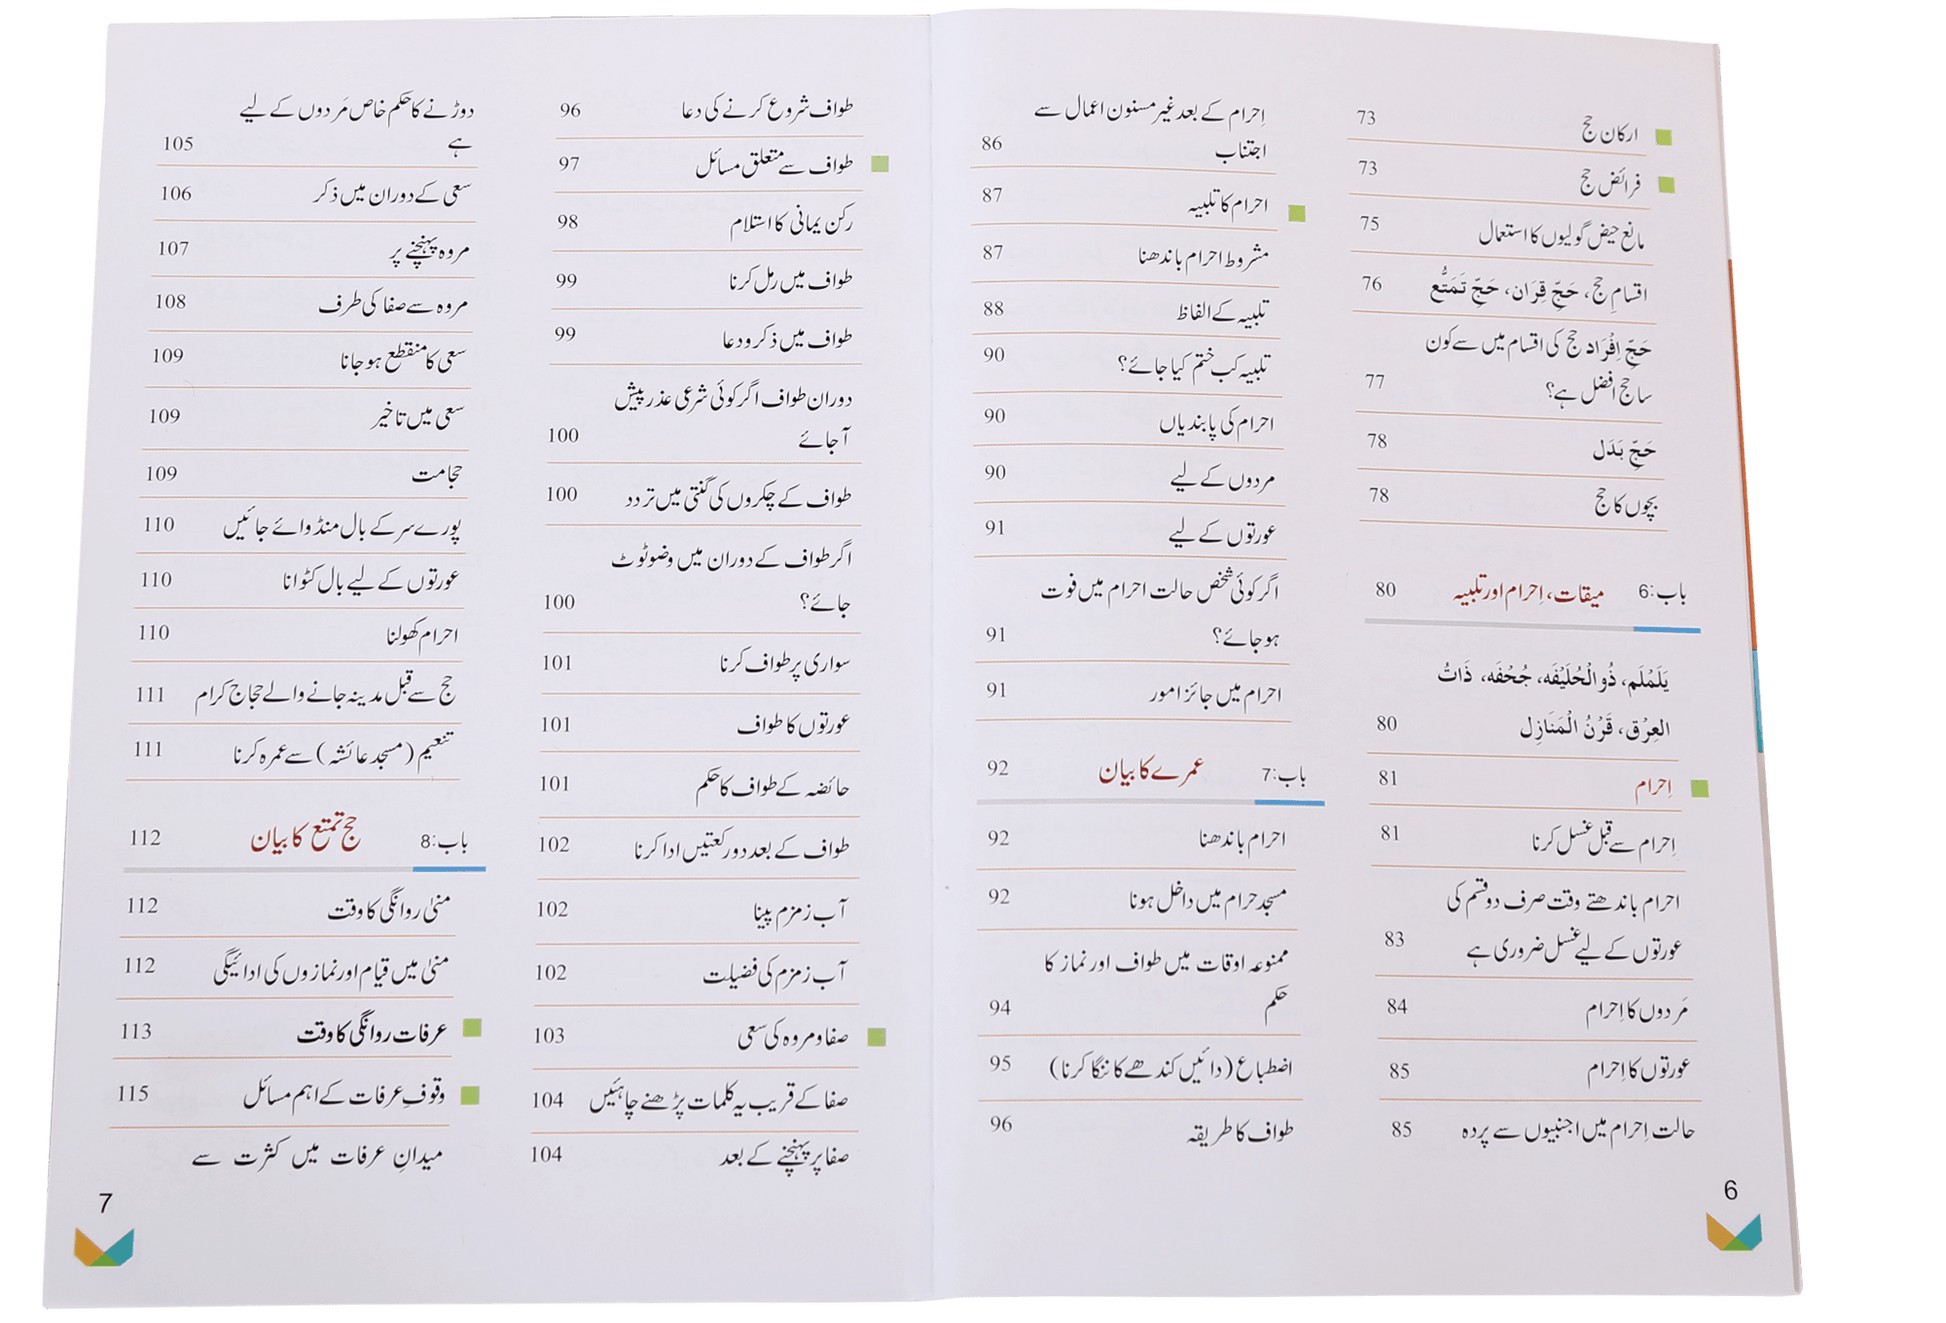 ارکان حج 73
فرائض حج 73
مانع حیض گولیوں کا استعمال 75
اقسامِ حج، حَجِّ قِرَان، حَجِّ تَمَتُّع 76
حَجِّ اِفْرَاد حج کی اقسام میں سے کون
سا حج افضل ہے؟ 77
حَجِّ بَدَل 78
بچوں کا حج 78
باب:6 میقات، اِحرام اور تلبیہ 80
یَلَمْلَم، ذُوالْحُلَیْفَه، جُحْفَه، ذَاتُ
العِرْق، قَرْنُ الْمَنَازِل 80
اِحرام 81
اِحرام سے قبل غسل کرنا 81
احرام باندھتے وقت صرف دو قسم کی
عورتوں کے لیے غسل ضروری ہے 83
مَردوں کا اِحرام 84
عورتوں کا اِحرام 85
حالت اِحرام میں اجنبیوں سے پردہ 85
اِحرام کے بعد غیر مسنون اعمال سے
اجتناب 86
احرام کا تلبیہ 87
مشروط احرام باندھنا 87
تلبیہ کے الفاظ 88
تلبیہ کب ختم کیا جائے؟ 90
احرام کی پابندیاں 90
مردوں کے لیے 90
عورتوں کے لیے 91
اگر کوئی شخص حالت احرام میں فوت
ہو جائے؟ 91
احرام میں جائز امور 91
باب:7 عمرے کا بیان 92
احرام باندھنا 92
مسجد حرام میں داخل ہونا 92
ممنوعہ اوقات میں طواف اور نماز کا
حکم 94
اضطباع (دائیں کندھے کا ننگا کرنا) 95
طواف کا طریقہ 96
6
طواف شروع کرنے کی دعا 96
طواف سے متعلق مسائل 97
رکن یمانی کا استلام 98
طواف میں رمل کرنا 99
طواف میں ذکر و دعا 99
دوران طواف اگر کوئی شرعی عذر پیش
آجائے 100
طواف کے چکروں کی گنتی میں تردد 100
اگر طواف کے دوران میں وضو ٹوٹ
جائے؟ 100
سواری پر طواف کرنا 101
عورتوں کا طواف 101
حائضہ کے طواف کا حکم 101
طواف کے بعد دو رکعتیں ادا کرنا 102
آب زمزم پینا 102
آب زمزم کی فضیلت 102
صفا و مروہ کی سعی 103
صفا کے قریب یہ کلمات پڑھنے چاہئیں 104
صفا پر پہنچنے کے بعد 104
دوڑنے کا حکم خاص مَردوں کے لیے
ہے 105
سعی کے دوران میں ذکر 106
مروہ پہنچنے پر 107
مروہ سے صفا کی طرف 108
سعی کا منقطع ہو جانا 109
سعی میں تاخیر 109
حجامت 109
پورے سر کے بال منڈوائے جائیں 110
عورتوں کے لیے بال کٹوانا 110
احرام کھولنا 110
حج سے قبل مدینہ جانے والے حجاج کرام 111
تنعیم (مسجد عائشہ) سے عمرہ کرنا 111
باب:8 حج تمتع کا بیان 112
منیٰ روانگی کا وقت 112
منیٰ میں قیام اور نمازوں کی ادائیگی 112
عرفات روانگی کا وقت 113
وقوفِ عرفات کے اہم مسائل 115
میدانِ عرفات میں کثرت سے
7